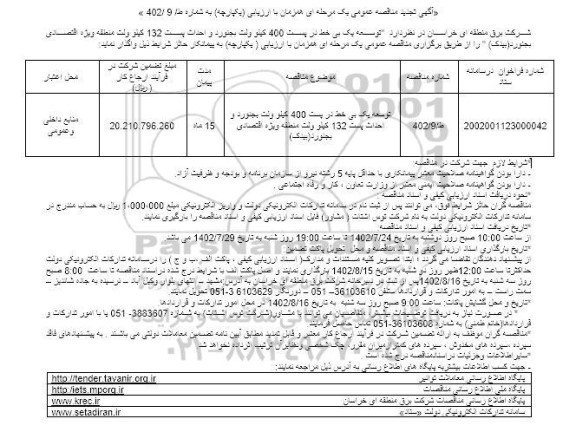 «آگهی تجدید مناقصه عمومی یک مرحله ای همزمان با ارزیابی (یکپارچه) به شماره ط/ 9 /402 »
شرکت برق منطقه ای خراسان در نظردارد "توسعه یک بی خط در پست 400 کیلو ولت بجنورد و احداث پست 132 کیلو ولت منطقه ویژه اقتصادی
بجنورد(بیدک) " را از طریق برگزاری مناقصه عمومی یک مرحله ای همزمان با ارزیابی ( یکپارچه) به پیمانکار حائز شرایط ذیل واگذار نماید:
شماره فراخوان درسامانه ستاد
شماره مناقصه
موضوع مناقصه
مدت پیمان
مبلغ تضمین شرکت در فرآیند ارجاع کار (ریال)
محل اعتبار
2002001123000042
ط/402/9
توسعه یک بی خط در پست 400 کیلو ولت بجنورد و احداث پست 132 کیلو ولت منطقه ویژه اقتصادی بجنورد(بیدک)
15 ماه
20.210.796.260
منابع داخلی وعمومی
*شرایط لازم جهت شرکت در مناقصه:
ـ دارا بودن گواهینامه صلاحیت معتبر پیمانکاری با حداقل پایه 5 رشته نیرو از سازمان برنامه و بودجه و ظرفیت آزاد.
ـ دارا بودن گواهینامه صلاحیت ایمنی معتبر از وزارت تعاون ، کار و رفاه اجتماعی .
*نحوه دریافت اسناد ارزیابی کیفی و اسناد مناقصه
مناقصه گران حائز شرایط فوق، می توانند پس از ثبت نام در سامانه تدارکات الکترونیکی دولت و واریز الکترونیکی مبلغ 1/000/000 ریال به حساب مندرج در
سامانه تدارکات الکترونیکی دولت به نام شرکت توس اشتات ( مشاور) فایل اسناد ارزیابی کیفی و اسناد مناقصه را بارگیری نمایند.
*تاریخ دریافت اسناد ارزیابی کیفی و اسناد مناقصه
از ساعت 10:00 صبح روز دوشنبه به تاریخ 1402/7/24 تا ساعت 19:00 روز شنبه به تاریخ 1402/7/29 می باشد
*تاریخ بارگذاری اسناد ارزیابی کیفی و اسناد مناقصه و محل تحویل پاکت تضمین
از پیشنهاد دهندگان تقاضا می گردد ، ابتدا تصویر کلیه مستندات و مدارک( اسناد ارزیابی کیفی ، پاکت الف، ب و ج ) را درسامانه تدارکات الکترونیکی دولت
حداکثرتا ساعت 12:00ظهر روز دو شنبه به تاریخ 1402/8/15 بارگذاری نمایند و اصل پاکت الف با شرایط درج شده دراسناد مناقصه تا ساعت 8:00 صبح
روز سه شنبه به تاریخ 1402/8/16پس از ثبت در دبیرخانه شرکت برق منطقه ای خراسان به آدرس:مشهد – انتهای بلوار وکیل آباد – نرسیده به جاده شاندیز –
سمت راست – به امور تدارکات و قراردادها ـتلفن 36103610-051 – دورنگار 36103629-051 تحویل نمایند.
*تاریخ و محل گشایش پاکات: ساعت 9:00 صبح روز سه شنبه به تاریخ 1402/8/16 در محل امور تدارکات و قراردادها.
* در صورت نیاز به دریافت توضیحات بیشتر، متقاضیان می توانند با مشاور(شرکت توس اشتات) به شماره 3883607-051 یا با امور تدارکات و
قراردادها(خانم طعمی) به شماره 36103608-051 تماس حاصل فرمایند.
*مناقصه گران موظف به ارائه تضمین شرکت در فرآیند ارجاع کار معتبر و قابل تمدید مطابق آیین نامه تضمین معاملات دولتی می باشند . به پیشنهادهای فاقد
سپرده ،سپرده های مخدوش ، سپرده های کمترازمیزان مقرر ، چک شخصی ونظایرآن ترتیب اثرداده نخواهد شد
*سایراطلاعات وجزئیات دراسنادمناقصه درج شده است
ـ جهت کسب اطلاعات بیشتربه پایگاه های اطلاع رسانی به آدرس ذیل مراجعه نمایند:
پایگاه اطلاع رسانی معاملات توانیر http://tender.tavanir.org.ir
پایگاه ملی اطلاع رسانی مناقصات http://iets.mporg.ir
پایگاه اطلاع رسانی مناقصات شرکت برق منطقه ای خراسان www.krec.ir
سامانه تدارکات الکترونیکی دولت «ستاد» www.setadiran.ir